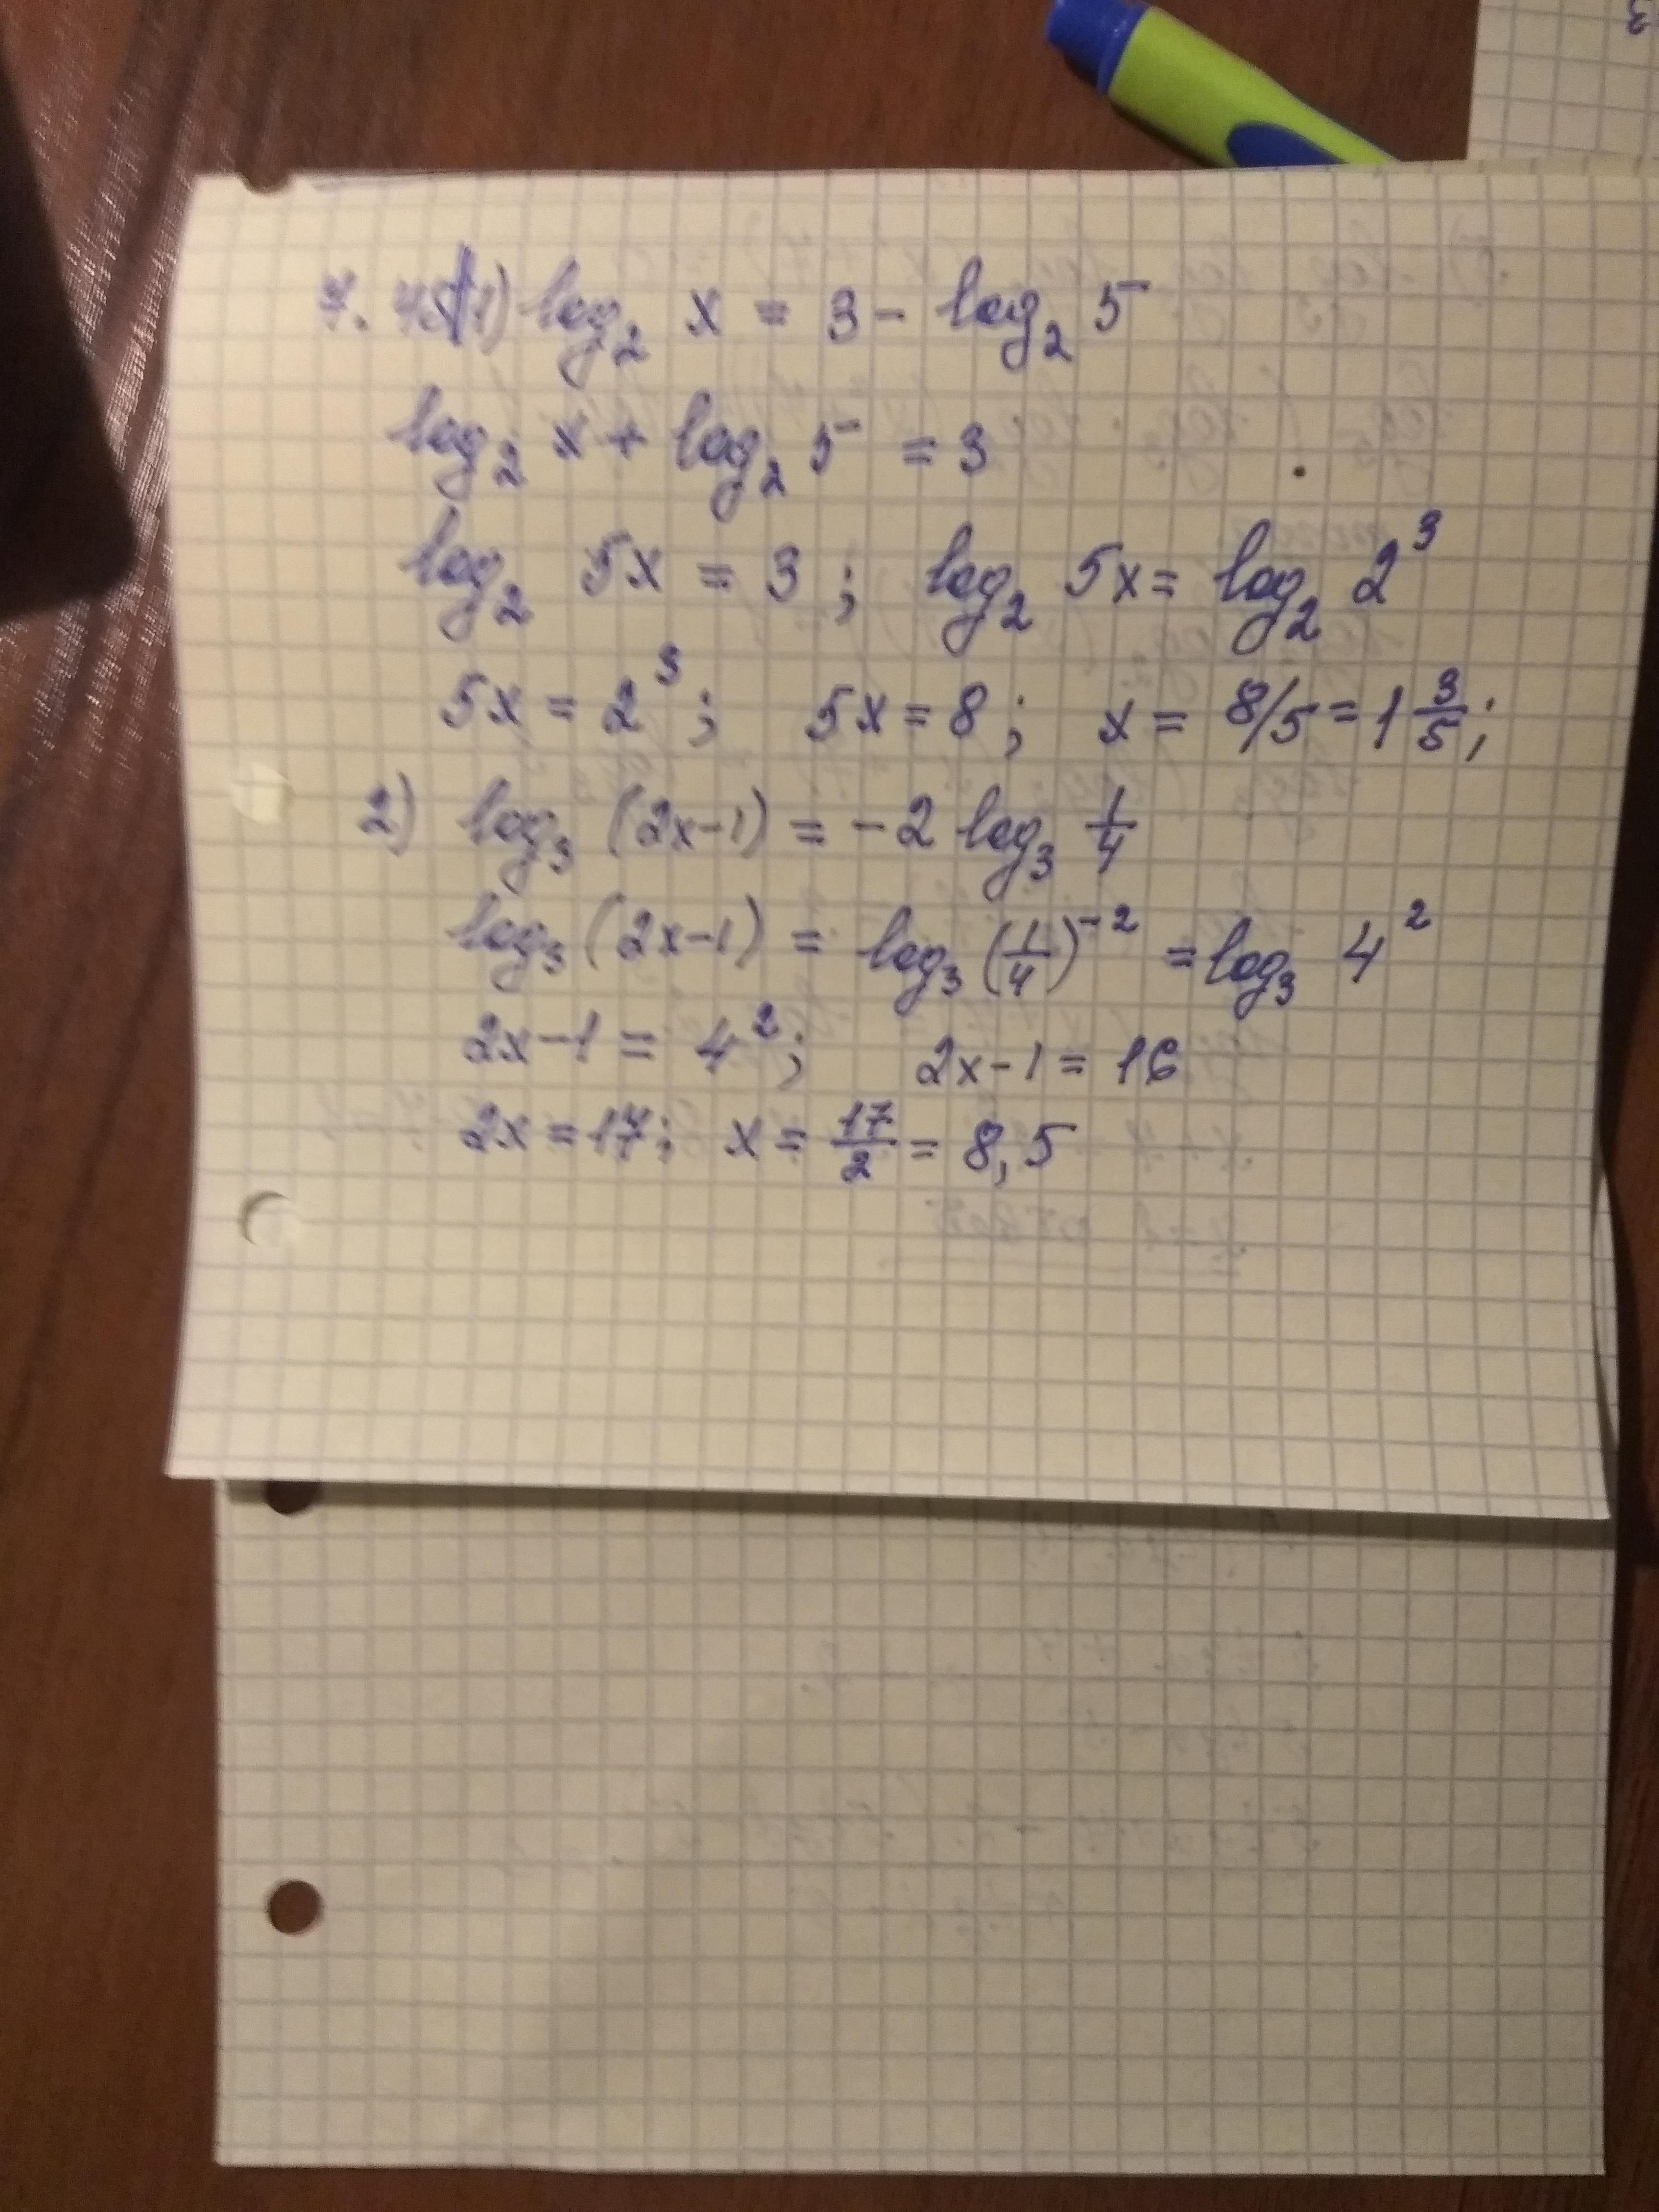 1) log₂ x = 3 - log₂ 5
log₂ x + log₂ 5 = 3
log₂ 5x = 3; log₂ 5x = log₂ 2³
5x = 2³; 5x = 8; x = 8/5 = 1 3/5;
2) log₃ (2x-1) = -2 log₃ 1/4
log₃ (2x-1) = log₃ (1/4)⁻² = log₃ 4²
2x-1 = 4²; 2x-1 = 16
2x = 17; x = 17/2 = 8,5